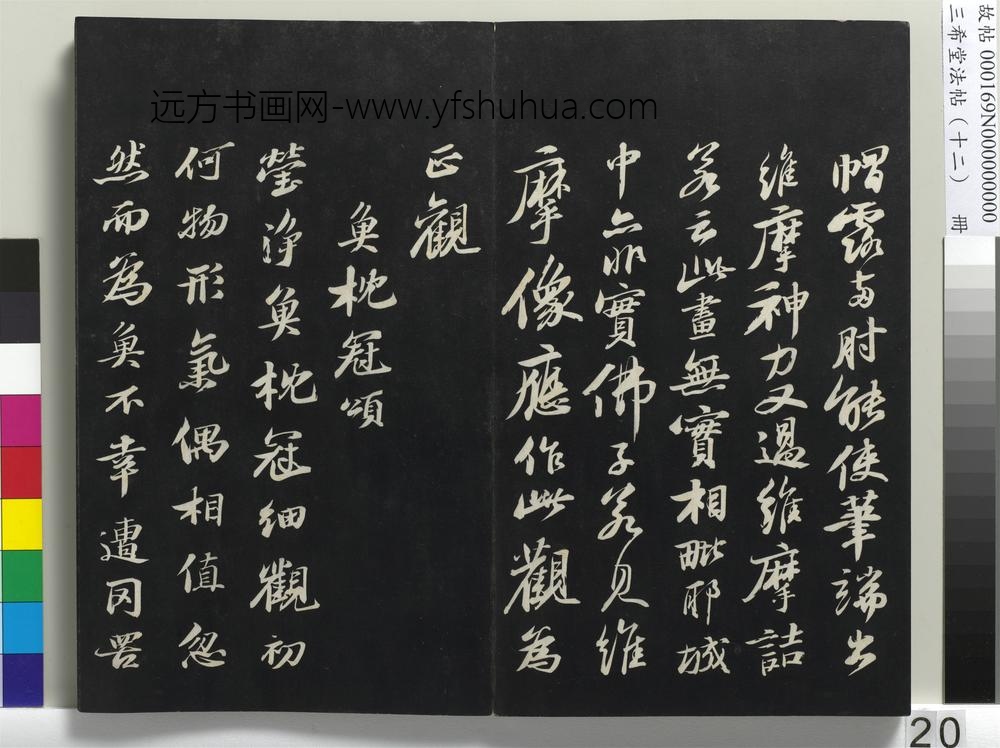 故帖 000169N000000000
三希堂法帖（十二） 冊
远方书画网-www.yfshuhua.com
帽露两肘能使筆端出
維摩神力又過維摩詰
若云此畫無實相毗耶城
中亦非實佛子若見維
摩像應作此觀為
正觀
魚枕冠頌
瑩淨魚枕冠細觀初
何物形氣偶相值忽
然而為魚不幸遭网罟
20